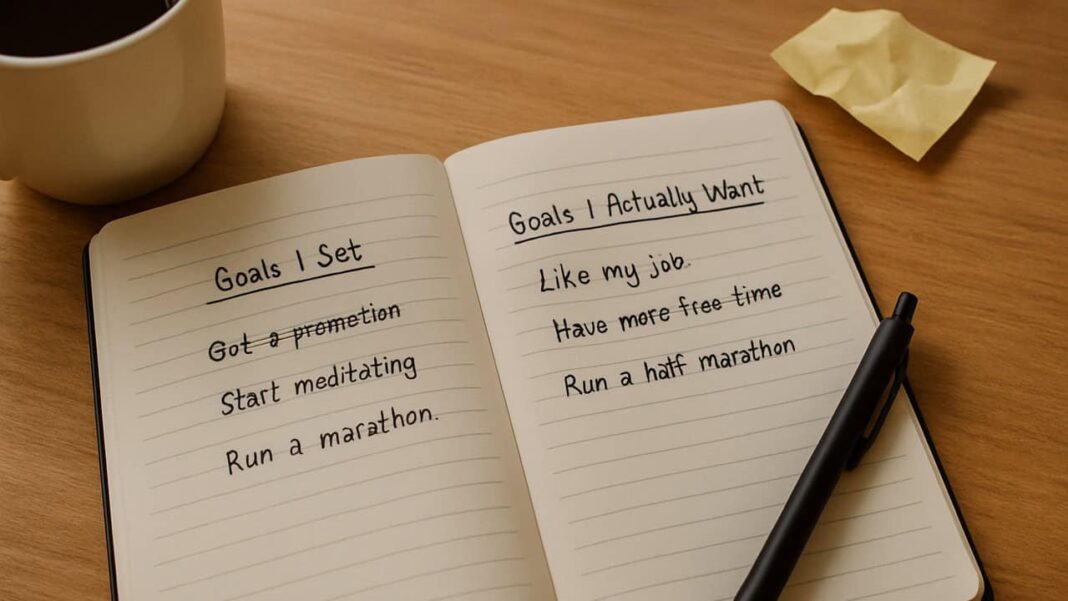 Goals I Set
Got a prometion
Start meditating
Run a marathon.
Goals I Actually Want
Like my job.
Have more free time
Run a half marathon